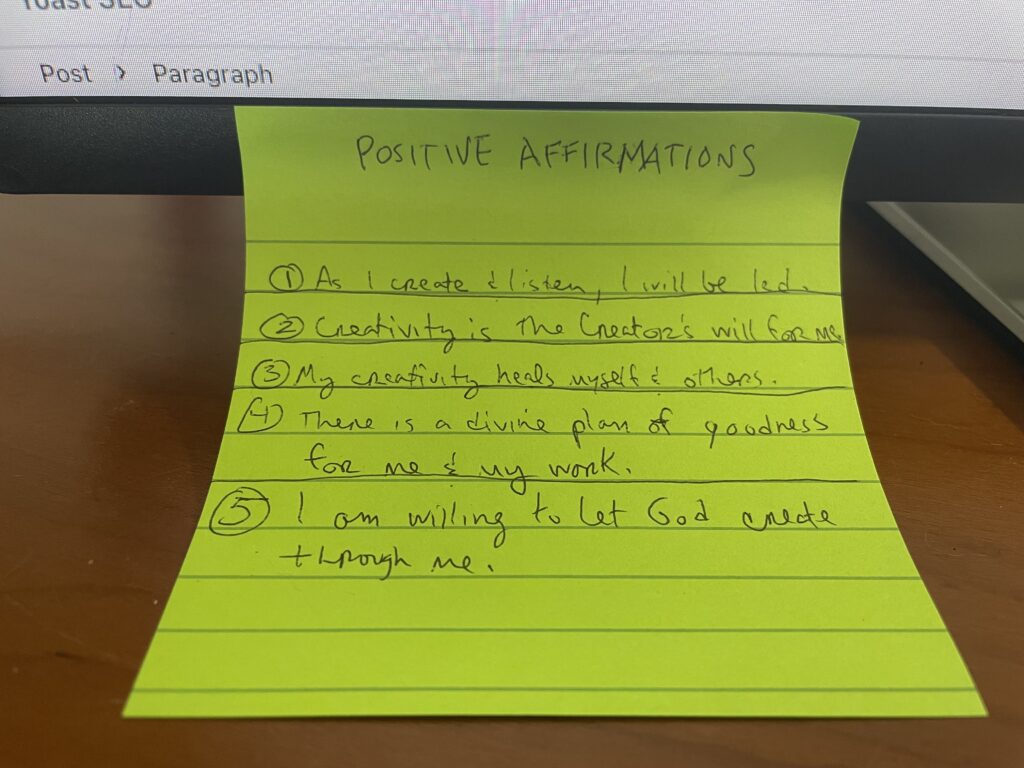 Yoast SEO
Post > Paragraph
POSITIVE AFFIRMATIONS
① As I create & listen, I will be led.
② Creativity is the Creator's will for me
③ My creativity heals myself & others.
④ There is a divine plan of goodness
for me & my work.
⑤ I am willing to let God create
through me.